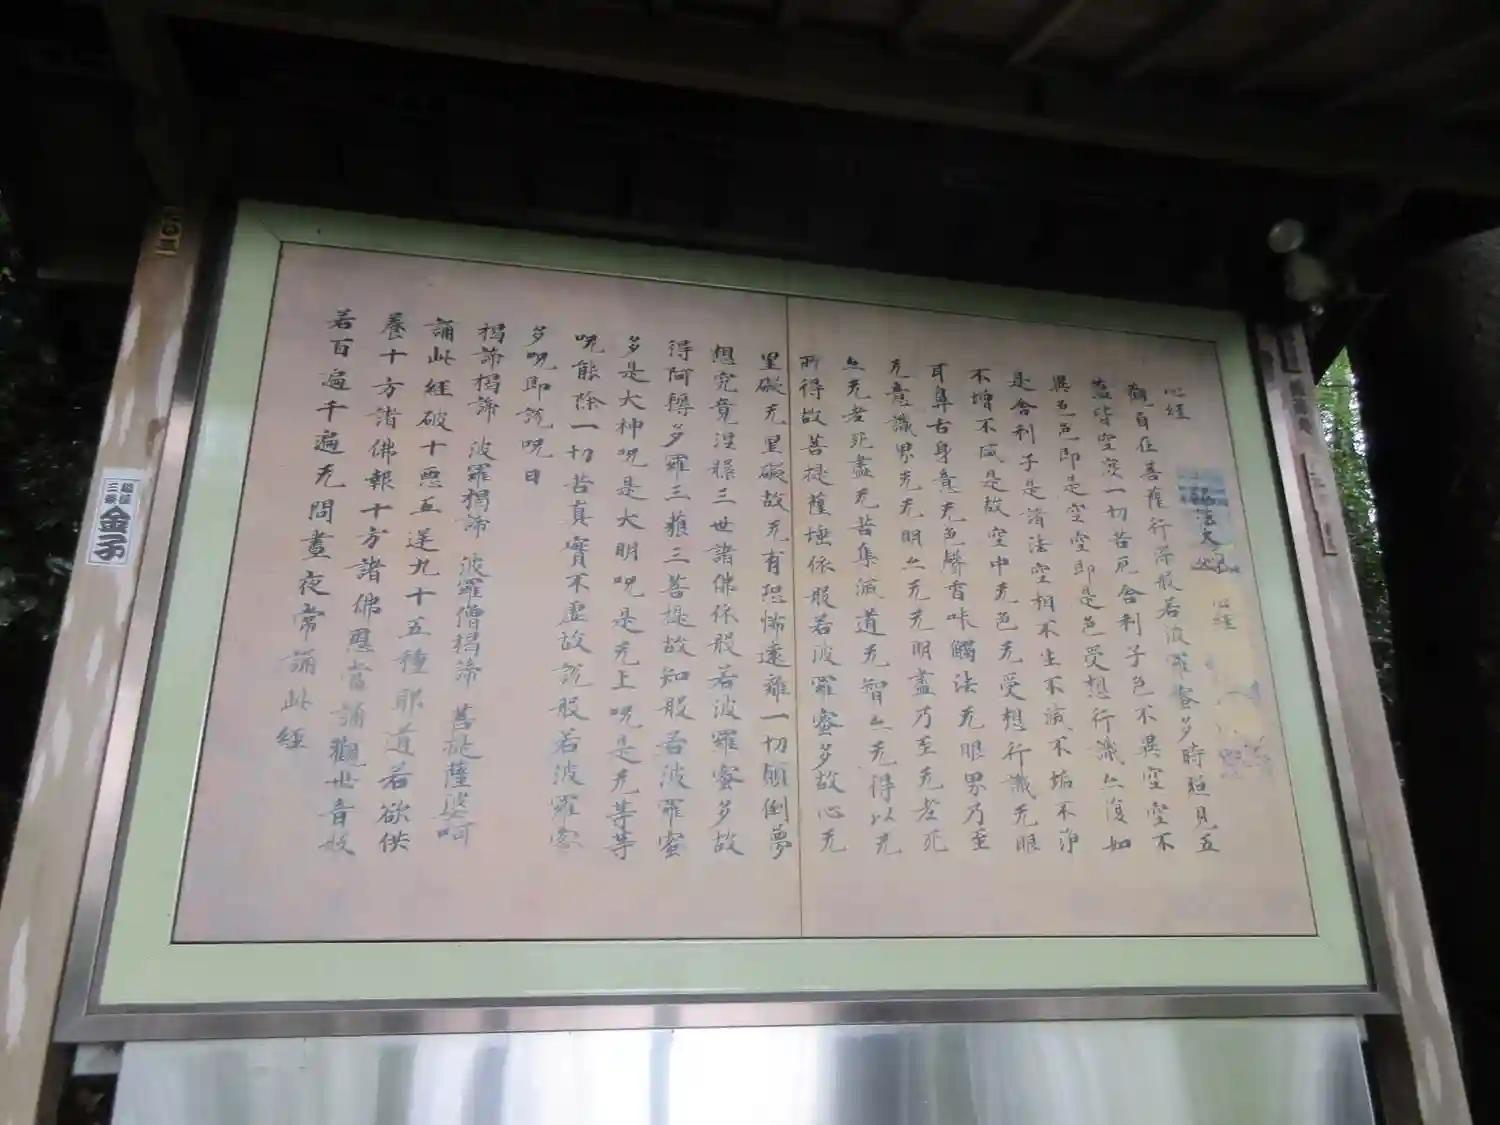 心経
觀自在菩薩行深般若波羅蜜多時照見五
蘊皆空度一切苦厄舍利子色不異空空不
異色色即是空空即是色受想行識亦復如
是舍利子是諸法空相不生不滅不垢不淨
不增不减是故空中无色无受想行識无眼
耳鼻舌身意无色聲香味觸法无眼界乃至
无意識界无无明亦无无明盡乃至无老死
亦无老死盡无苦集滅道无智亦无得以无
所得故菩提薩埵依般若波羅蜜多故心无
罣礙无罣礙故无有恐怖遠離一切顛倒夢
想究竟涅槃三世諸佛依般若波羅蜜多故
得阿耨多羅三藐三菩提故知般若波羅蜜
多是大神呪是大明呪是无上呪是无等等
呪能除一切苦真實不虛故說般若波羅蜜
多呪即說呪曰
揭諦揭諦 波羅揭諦 波羅僧揭諦 菩提薩婆呵
誦此經破十惡五逆九十五種耶道若欲供
養十方諸佛報十方諸佛恩當誦觀世音般
若百遍千遍无問晝夜常誦此經
弘法大
心経
金子